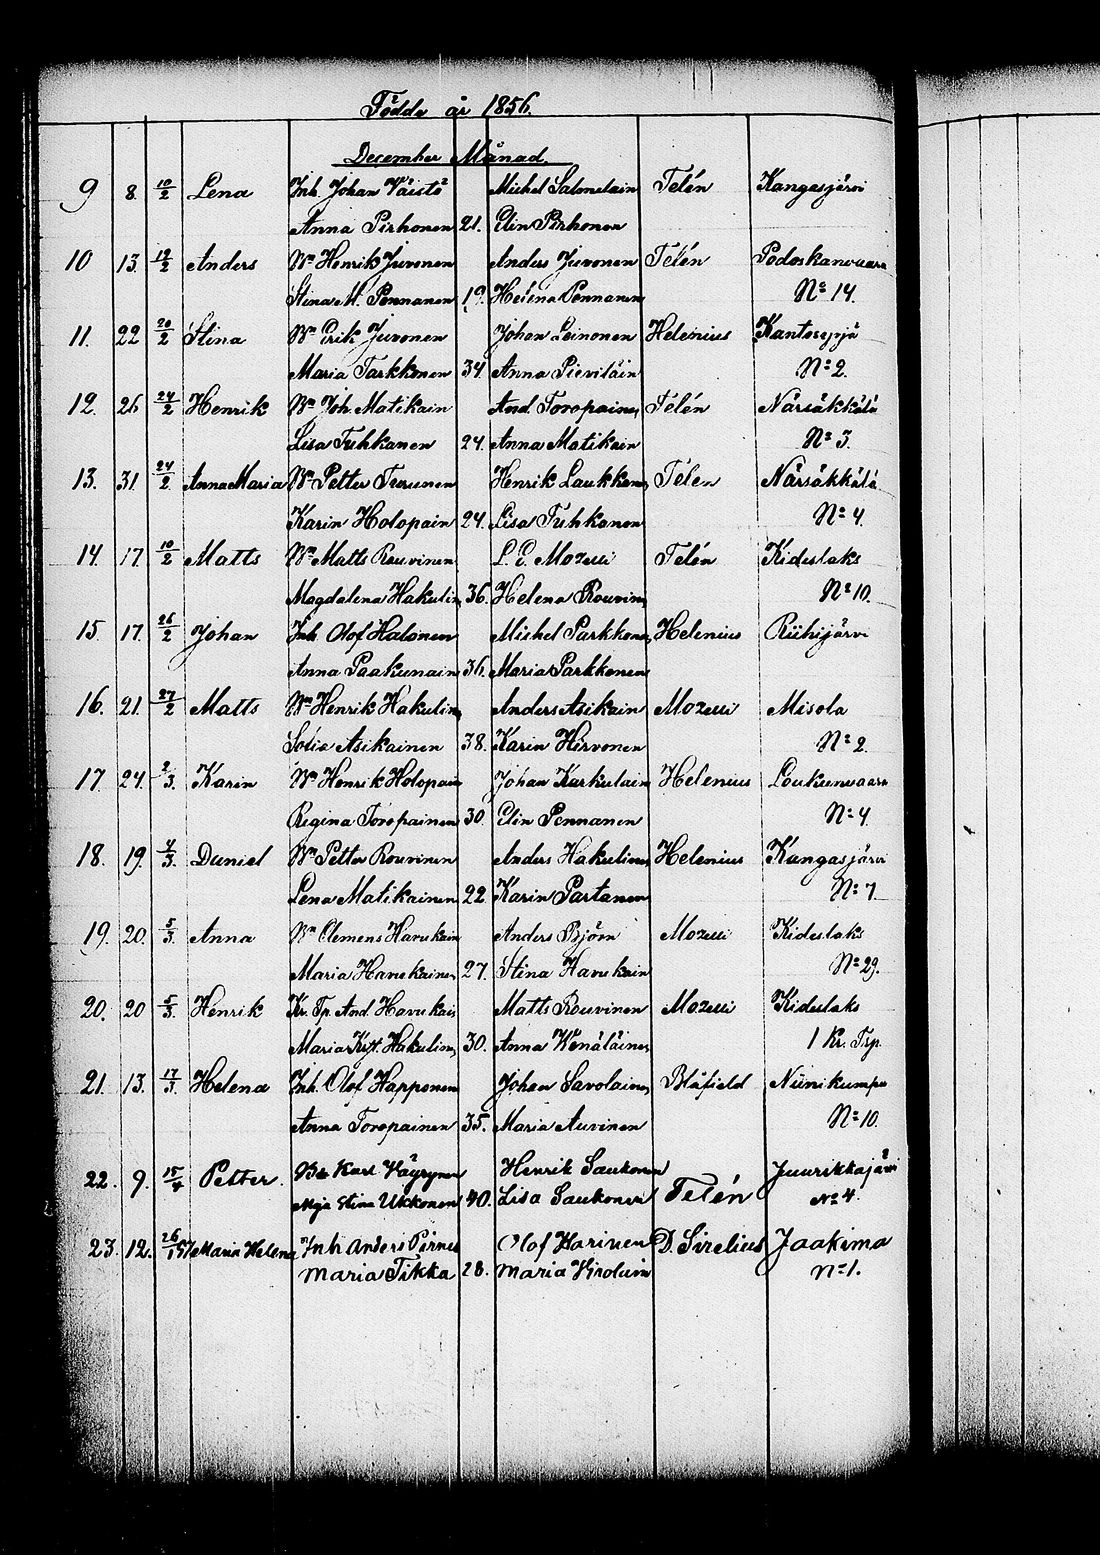 Födda år 1856.
December Månad.
9 8. 10/2 Lena Inh. Johan Väistö Michel Salmelain Telén Kangasjärvi
Anna Pirhonen 21. Elin Pirhonen
10 13. 19/2 Anders Bn Henrik Juvonen Anders Juvonen Telén Podoskanvaara
Stina M. Pennanen 19. Helena Pennanen No 14.
11. 22 20/2 Stina Bn Erik Juvonen Johan Leinonen Helenius Kantosyrjä
Maria Tarkkonen 34 Anna Pieviläin No 2.
12. 26 24/2 Henrik Bn Joh. Matikain And. Toropainen Telén Närsäkkälä
Lisa Tuhkanen 24. Anna Matikain No 3.
13. 31. 24/2. Anna Maria Bn Petter Turunen Henrik Laukkanen Telén Närsäkkälä
Karin Holopain 24. Lisa Tuhkanen No 4.
14. 17. 10/2 Matts Bn Matts Rouvinen L. E. Mozelli Telén Kideslaks
Magdalena Hakulin 36. Helena Rouvinen No 10.
15. 17. 26/2 Johan Inh. Olof Halonen Michel Parkkonen Helenius Riihijärvi
Anna Paakunain 36. Maria Parkkonen
16. 21. 27/2 Matts Bn Henrik Hakulin Anders Asikain Mozelli Misola
Sofia Asikainen 38. Karin Hirvonen No 2.
17. 24. 2/3. Karin Bn Henrik Holopain Johan Karkulain Helenius Loukunvaara
Regina Toropainen 30 Elin Pennanen No 4.
18. 19. 4/3. Daniel Bn Petter Rouvinen Anders Hakulinen Helenius Kangasjärvi
Lena Matikainen 22. Karin Partanen No 7.
19. 20. 5/3. Anna Bn Clemens Havukain Anders Björn Mozelli Kideslaks
Maria Havukainen 27. Stina Havukain No 29.
20. 20 5/3. Henrik Kr. Tp. And. Havukain Matts Rouvinen Mozelli Kideslaks
Maria Krist. Hakulin 30. Anna Wenäläinen 1 Kr. Trp.
21. 13. 17/3. Helena Inh. Olof Happonen Johan Savolainen Blåfield Niinikumpu
Anna Toropainen 35. Maria Auvinen No 10.
22. 9. 15/4 Petter. Bn Karl Väyrynen Henrik Saukonen Telén Juurikkajärvi
Maja Stina Ukkonen 40. Lisa Saukonen No 4.
23. 12. 26/1 57 Maria Helena Inh Anders Pirnes Olof Harinen D. Sirelius Jaakima
Maria Tikka 28. Maria Virolain No 1.